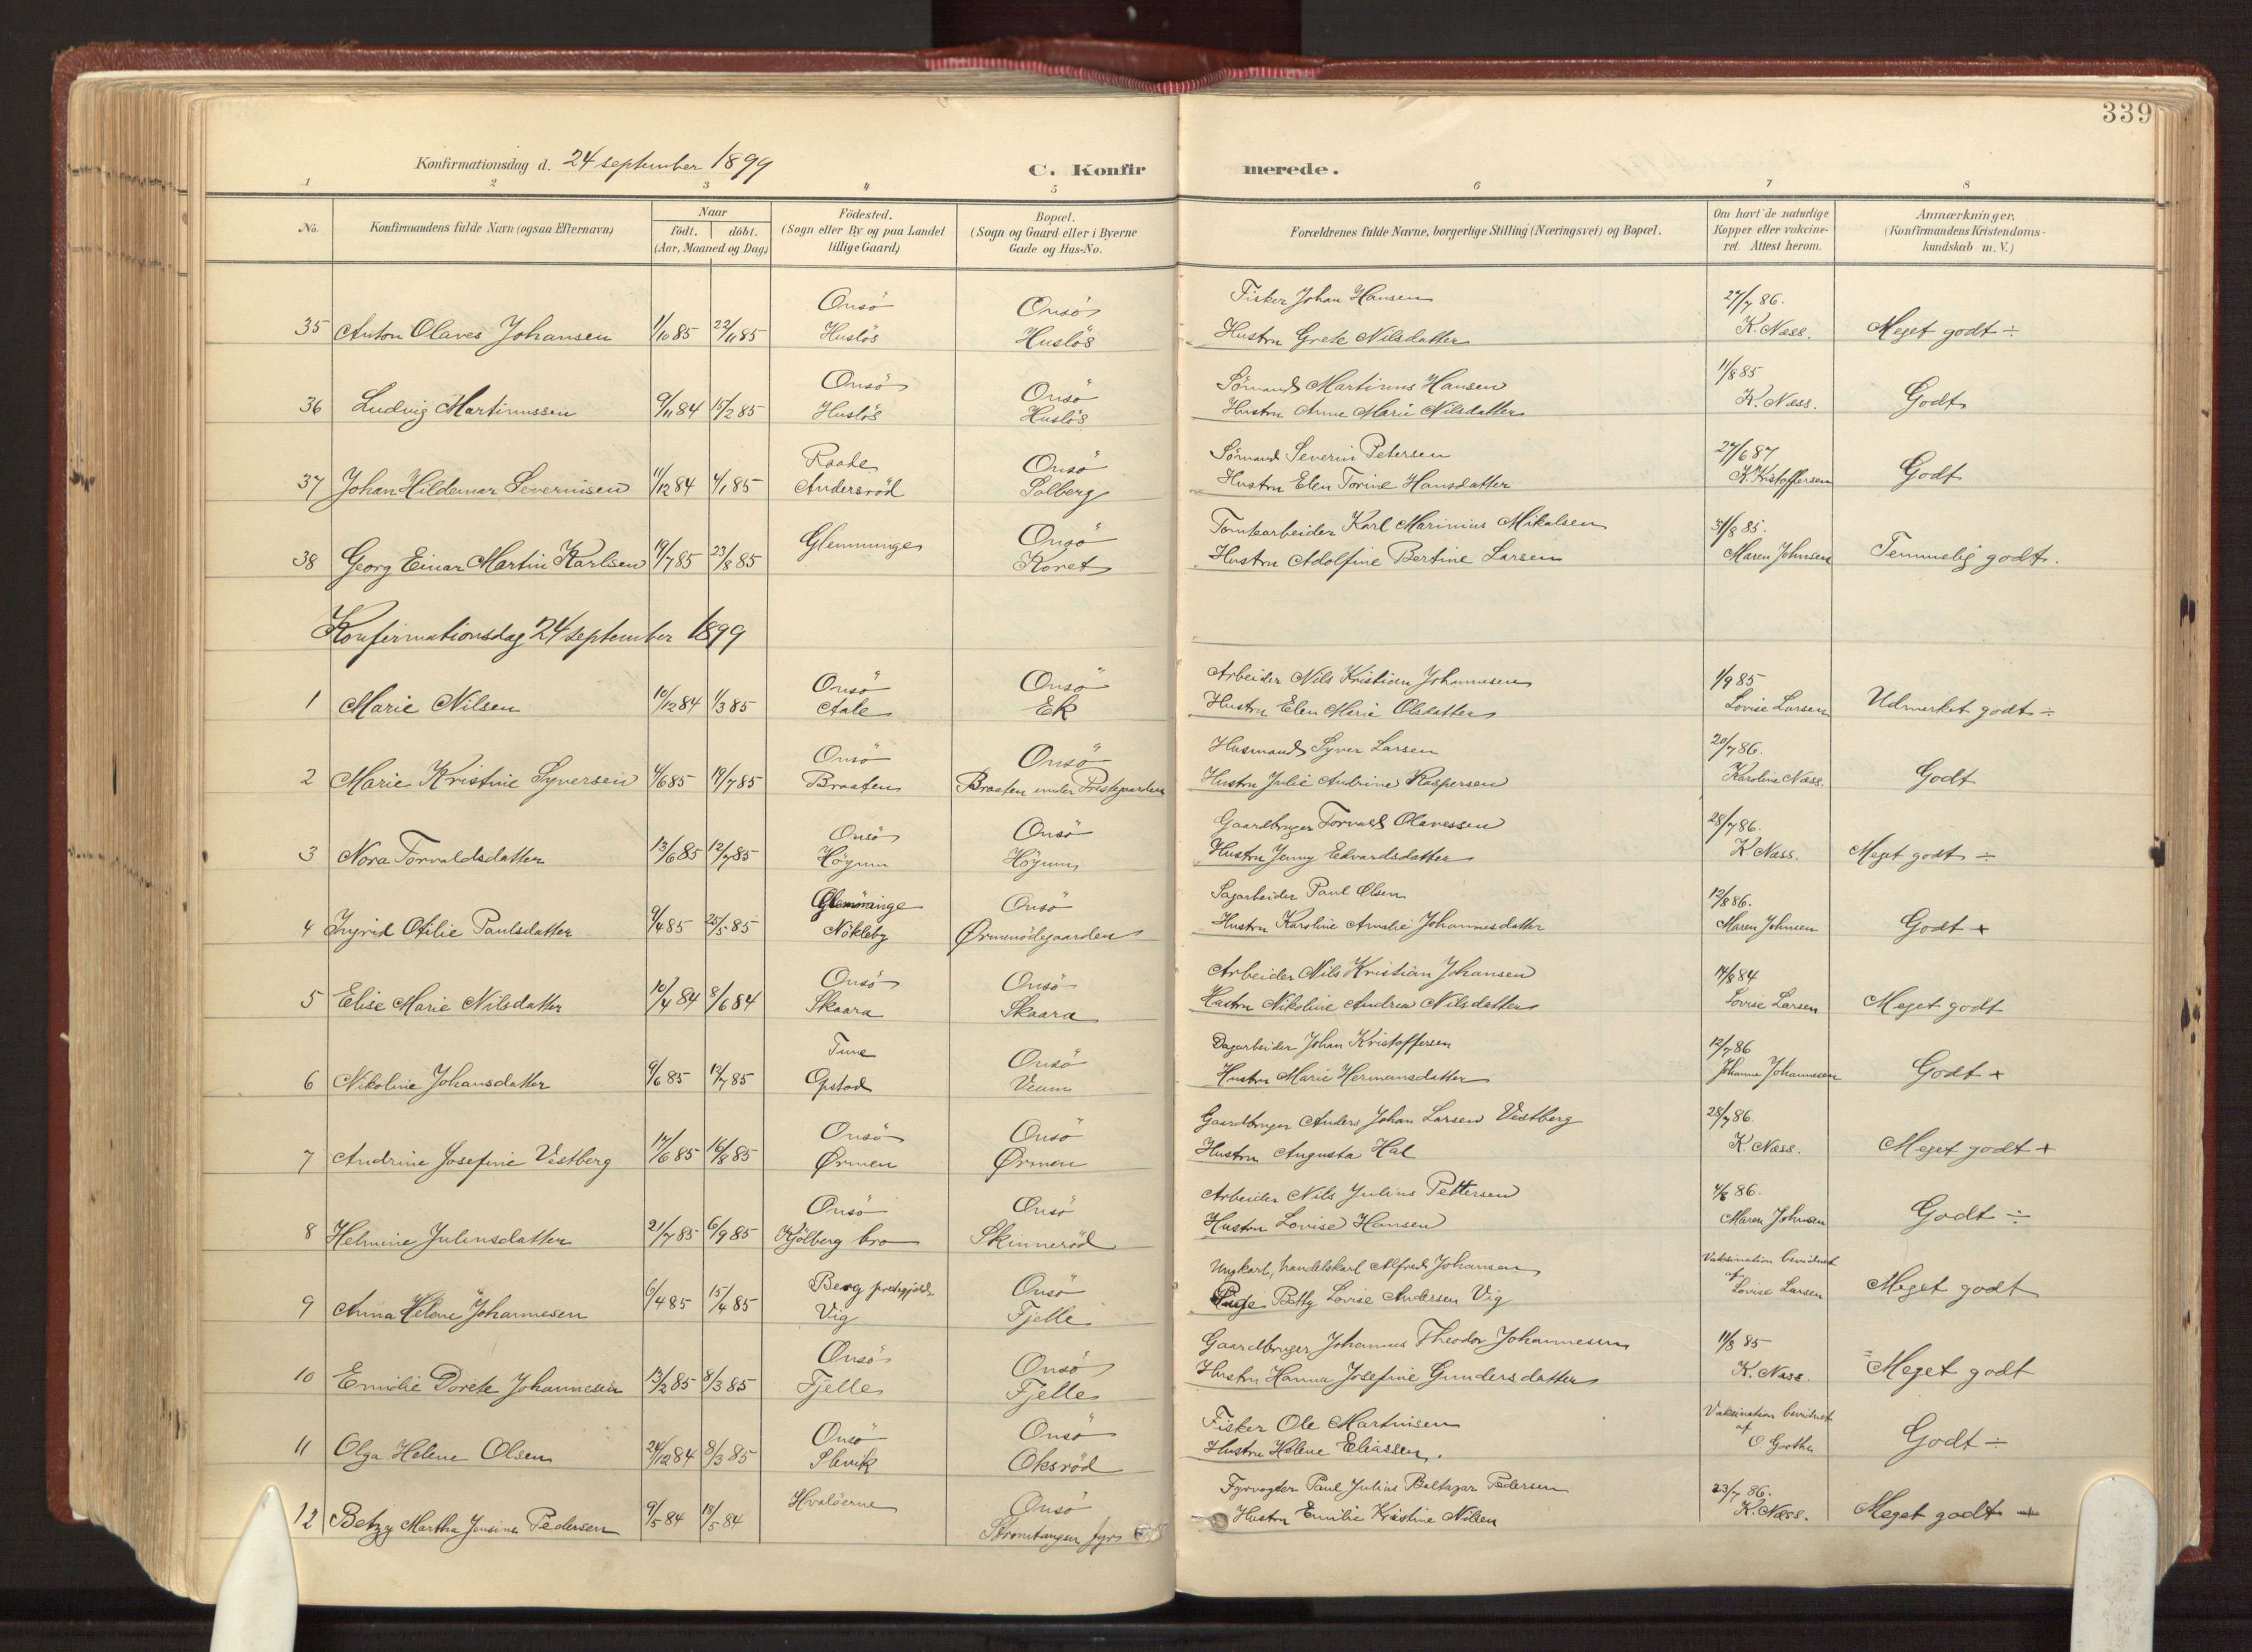 339
Konfirmationsdag d. 24 september 1899
C. Konfirmerede.
1 2 3 4 5 6 7 8
No.
Konfirmandens fulde Navn (ogsaa Efternavn)
Naar
födt. döbt.
(Aar, Maaned og Dag)
Födested.
(Sogn eller By og paa Landet
tillige Gaard)
Bopæl.
(Sogn og Gaard eller i Byerne
Gade og Hus-No.
Forældrenes fulde Navne, borgerlige Stilling (Næringsvei) og Bopæl.
Om havt de naturlige
Kopper eller vakcine-
ret. Attest herom.
Anmærkninger.
(Konfirmandens Kristendoms-
kundskab m. V.)
Onsö Onsö Fisker Johan Hansen 27/7 86.
35 Anton Olaves Johansen 1/10 85 22/11 85 Huslös Huslös Hustru Grete Nilsdatter K. Næss. Meget godt ÷
Onsö Onsö Sömand Martinus Hansen 11/8 85
36 Ludvig Martinussen 9/11 84 15/2 85 Huslös Huslös Hustru Anne Marie Nilsdatter K. Næss. Godt
Raade Onsö Sömand Severin Petersen 27/6 87
37 Johan Hildemar Severinsen 11/12 84 4/1 85 Andersröd Solberg Hustru Elen Torine Hansdatter K. Kristoffersen Godt
Glemminge Onsö Tomtearbeider Karl Marinius Mikalsen 31/8 85.
38 Georg Einar Martin Karlsen 19/7 85 23/8 85 Koret Hustru Adolfine Bertine Larsen Maren Johnsen Temmelig godt.
Konfirmationsdag 24 september 1899
Onsö Onsö Arbeider Nils Kristian Johannesen 1/9 85
1 Marie Nilsen 10/12 84 1/3 85 Aale Ek Hustru Elen Marie Olsdatter Lovise Larsen Udmerket godt ÷
Onsö Onsö Husmand Syver Larsen 20/7 86.
2 Marie Kristine Syversen 4/6 85 19/7 85 Braaten Braaten under Prestegaarden Hustru Julie Andrine Kaspersen Karoline Næss. Godt
Onsö Onsö Gaardbruger Torvald Olavessen 28/7 86.
3 Nora Torvaldsdatter 13/6 85 12/7 85 Höyum Höyum Hustru Jenny Edvardsdatter K. Næss. Meget godt ÷
Glemminge Onsö Sagarbeider Paul Olsen 12/8 86.
4 Ingrid Otilie Paulsdatter 9/4 85 25/5 85 Nökleby Ørmenödegaarden Hustru Karoline Amalie Johannesdatter Maren Johnsen Godt +
Onsö Onsö Arbeider Nils Kristian Johansen 14/8 84
5 Elise Marie Nilsdatter 10/4 84 8/6 84 Skaara Skaara Hustru Nikoline Andrea Nilsdatter Lovise Larsen Meget godt
Tune Onsö Dagarbeider Johan Kristoffersen 12/7 86
6 Nikoline Johansdatter 9/6 85 12/7 85 Opstad Veum Hustru Marie Hermansdatter Johanne Johannessen Godt +
Onsö Onsö Gaardbruger Anders Johan Larsen Vestberg 28/7 86.
7 Andrine Josefine Vestberg 17/6 85 16/8 85 Ørmen Ørmen Hustru Augusta Hal K. Næss. Meget godt +
Onsö Onsö Arbeider Nils Julius Pettersen 4/8 86.
8 Helmine Juliusdatter 21/7 85 6/9 85 Kjölberg bro Skinneröd Hustru Lovise Hansen Maren Johnsen Godt ÷
Berg prestegjeld Onsö Ungkarl, handelskarl Alfred Johansen Vaksination bevidnet af
9 Anna Helene Johannesen 6/4 85 15/4 85 Vig Fjelle Pige Betty Lovise Andersen Vig Lovise Larsen Meget godt
Onsö Onsö Gaardbruger Johannes Theodor Johannesen 11/8 85
10 Emilie Dorete Johannesen 13/2 85 8/3 85 Fjelle Fjelle Hustru Hanna Josefine Gundersdatter K. Næss. Meget godt
Onsö Onsö Fisker Ole Martinisen Vaksination bevidnet af
11 Olga Helene Olsen 24/12 84 8/3 85 Slevik Oksröd Hustru Helene Eliassen. O. Grothe Godt ÷
Hvalöerne Onsö Fyrvogter Paul Julius Baltazar Pedersen 23/7 86.
12 Betzy Martha Jensine Pedersen 9/5 84 18/5 84 Stromtangen fyr Hustru Emilie Kristine Nilsen K. Næss. Meget godt +